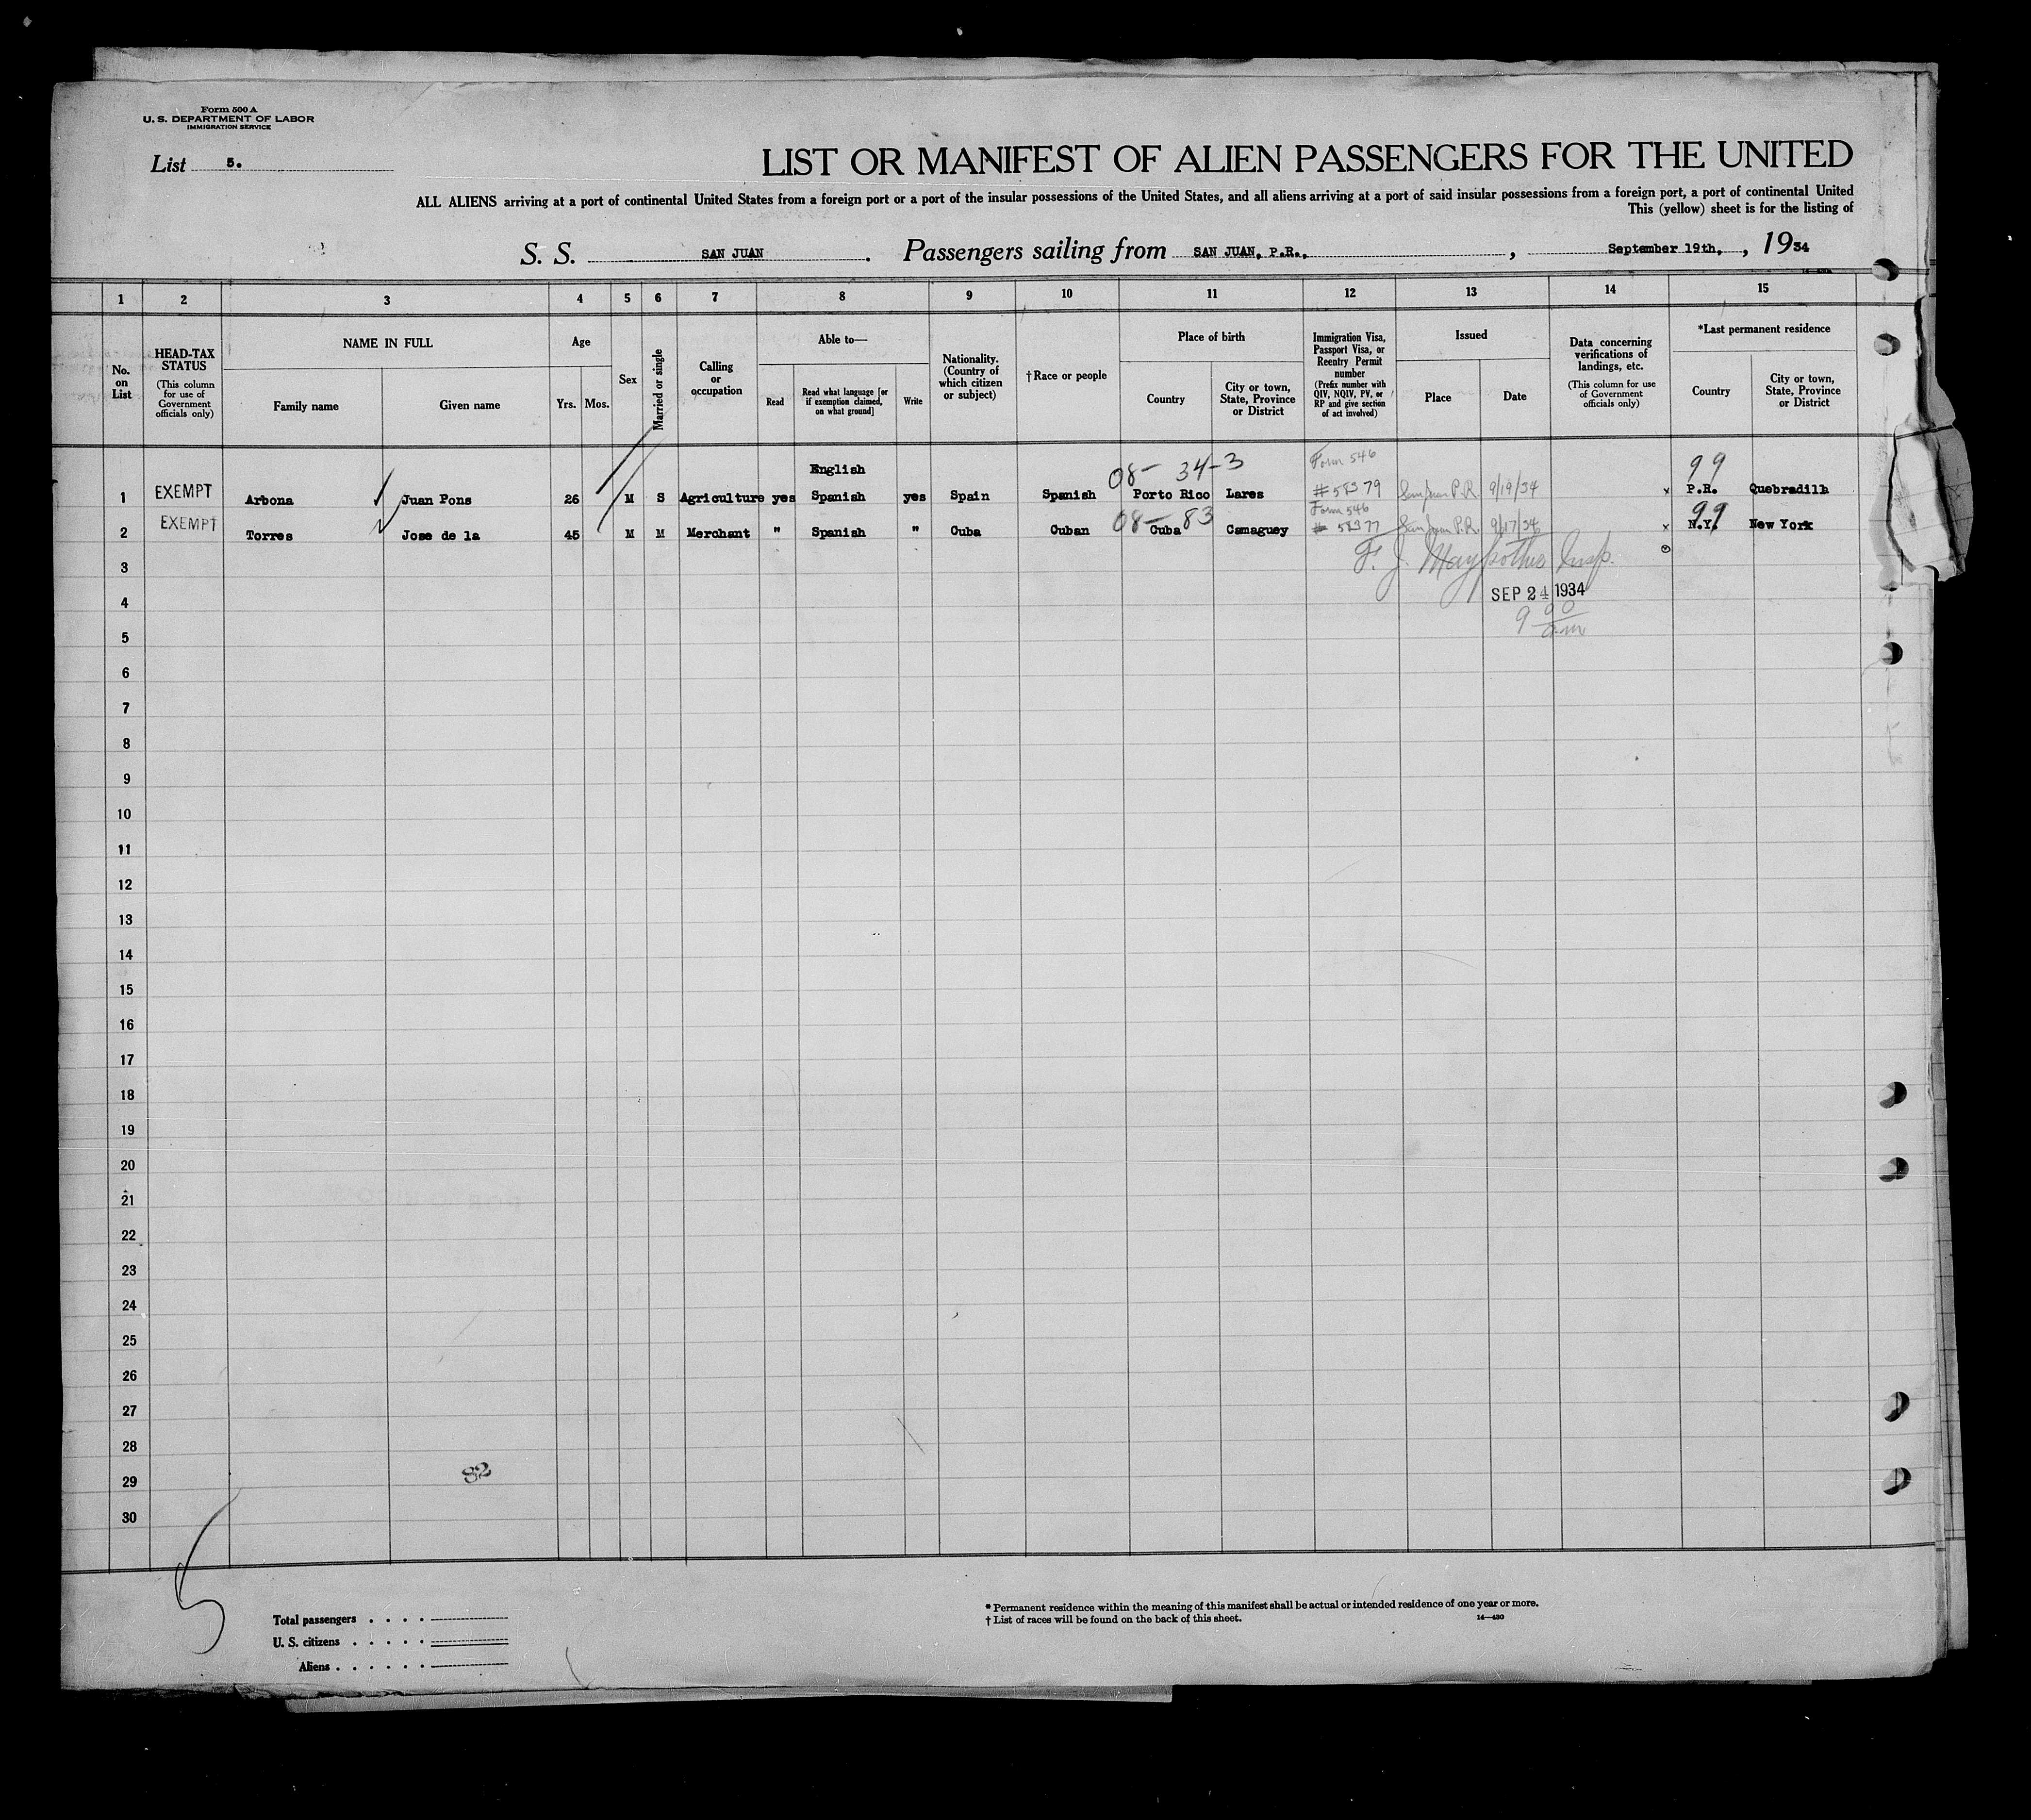 Form 500 A
U. S. DEPARTMENT OF LABOR
IMMIGRATION SERVICE
List 5.
LIST OR MANIFEST OF ALIEN PASSENGERS FOR THE UNITED
ALL ALIENS arriving at a port of continental United States from a foreign port or a port of the insular possessions of the United States, and all aliens arriving at a port of said insular possessions from a foreign port, a port of continental United
This (yellow) sheet is for the listing of
S. S. SAN JUAN. Passengers sailing from SAN JUAN, P.R., , September 19th, , 1934
1 2 3 4 5 6 7 8 9 10 11 12 13 14 15
No. on List
HEAD-TAX STATUS
(This column for use of Government officials only)
NAME IN FULL
Family name
Given name
Age
Yrs. Mos.
Sex
Married or single
Calling or occupation
Able to—
Read
Read what language [or if exemption claimed, on what ground]
Write
Nationality. (Country of which citizen or subject)
†Race or people
Place of birth
Country
City or town, State, Province or District
Immigration Visa, Passport Visa, or Reentry Permit number
(Prefix number with QIV, NQIV, PV, or RP and give section of act involved)
Issued
Place
Date
Data concerning verifications of landings, etc.
(This column for use of Government officials only)
*Last permanent residence
Country
City or town, State, Province or District
English 08- 34-3 Form 546 99
1 EXEMPT Arbona Juan Pons 26 M S Agriculture yes Spanish yes Spain Spanish Porto Rico Lares #58379 San Juan P.R. 9/19/34 x P.R. Quebradilla
08-83 Form 546 99
2 EXEMPT Torres Jose de la 45 M M Merchant " Spanish " Cuba Cuban Cuba Camaguey # 58377 San Juan P.R. 9/17/34 x N.Y. New York
3 F. J. Insp.
4 SEP 24 1934
5 am
6
7
8
9
10
11
12
13
14
15
16
17
18
19
20
21
22
23
24
25
26
27
28
29 82
30
5
Total passengers . . . .
U. S. citizens . . . . .
Aliens . . . . . .
* Permanent residence within the meaning of this manifest shall be actual or intended residence of one year or more.
† List of races will be found on the back of this sheet. 14—430